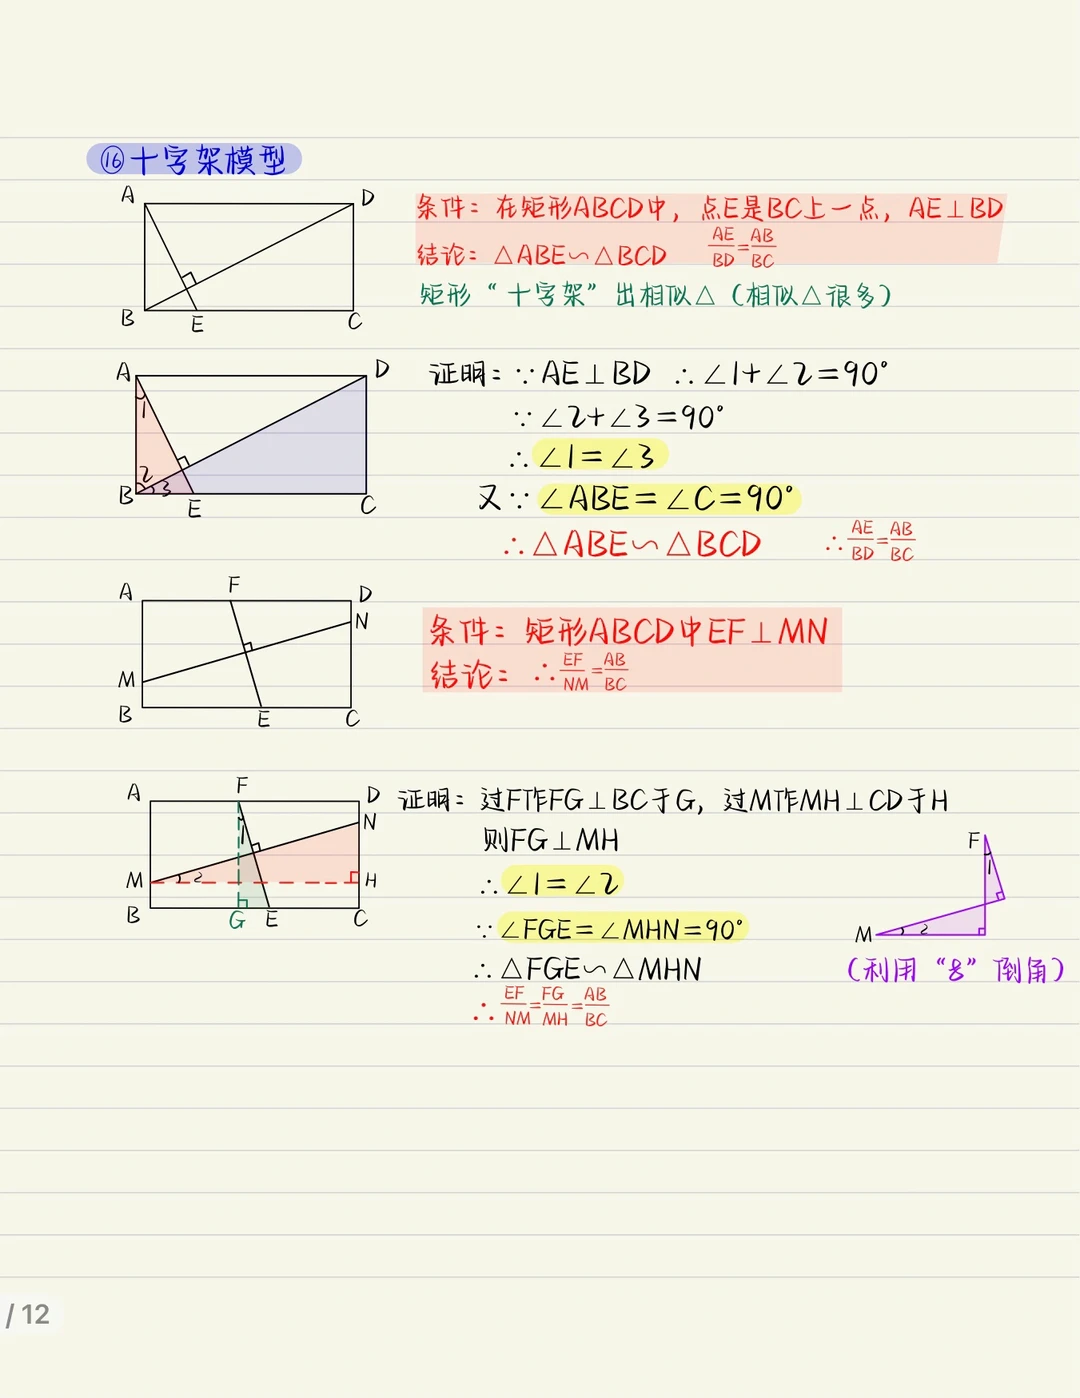 ⑯十字架模型
A D
条件：在矩形ABCD中，点E是BC上一点，AE⊥BD
结论：△ABE∽△BCD AE/BD=AB/BC
矩形“十字架”出相似△（相似△很多）
B E C
A D
1
2 3
B E C
证明：∵AE⊥BD ∴∠1+∠2=90°
∵∠2+∠3=90°
∴∠1=∠3
又∵∠ABE=∠C=90°
∴△ABE∽△BCD ∴AE/BD=AB/BC
A F D
N
M
B E C
条件：矩形ABCD中EF⊥MN
结论：∴EF/NM=AB/BC
A F D
N
1
M 2 H
B G E C
证明：过F作FG⊥BC于G，过M作MH⊥CD于H
则FG⊥MH
∴∠1=∠2
∵∠FGE=∠MHN=90°
∴△FGE∽△MHN
∴EF/NM=FG/MH=AB/BC
F
1
M 2
（利用“8”倒角）
/ 12